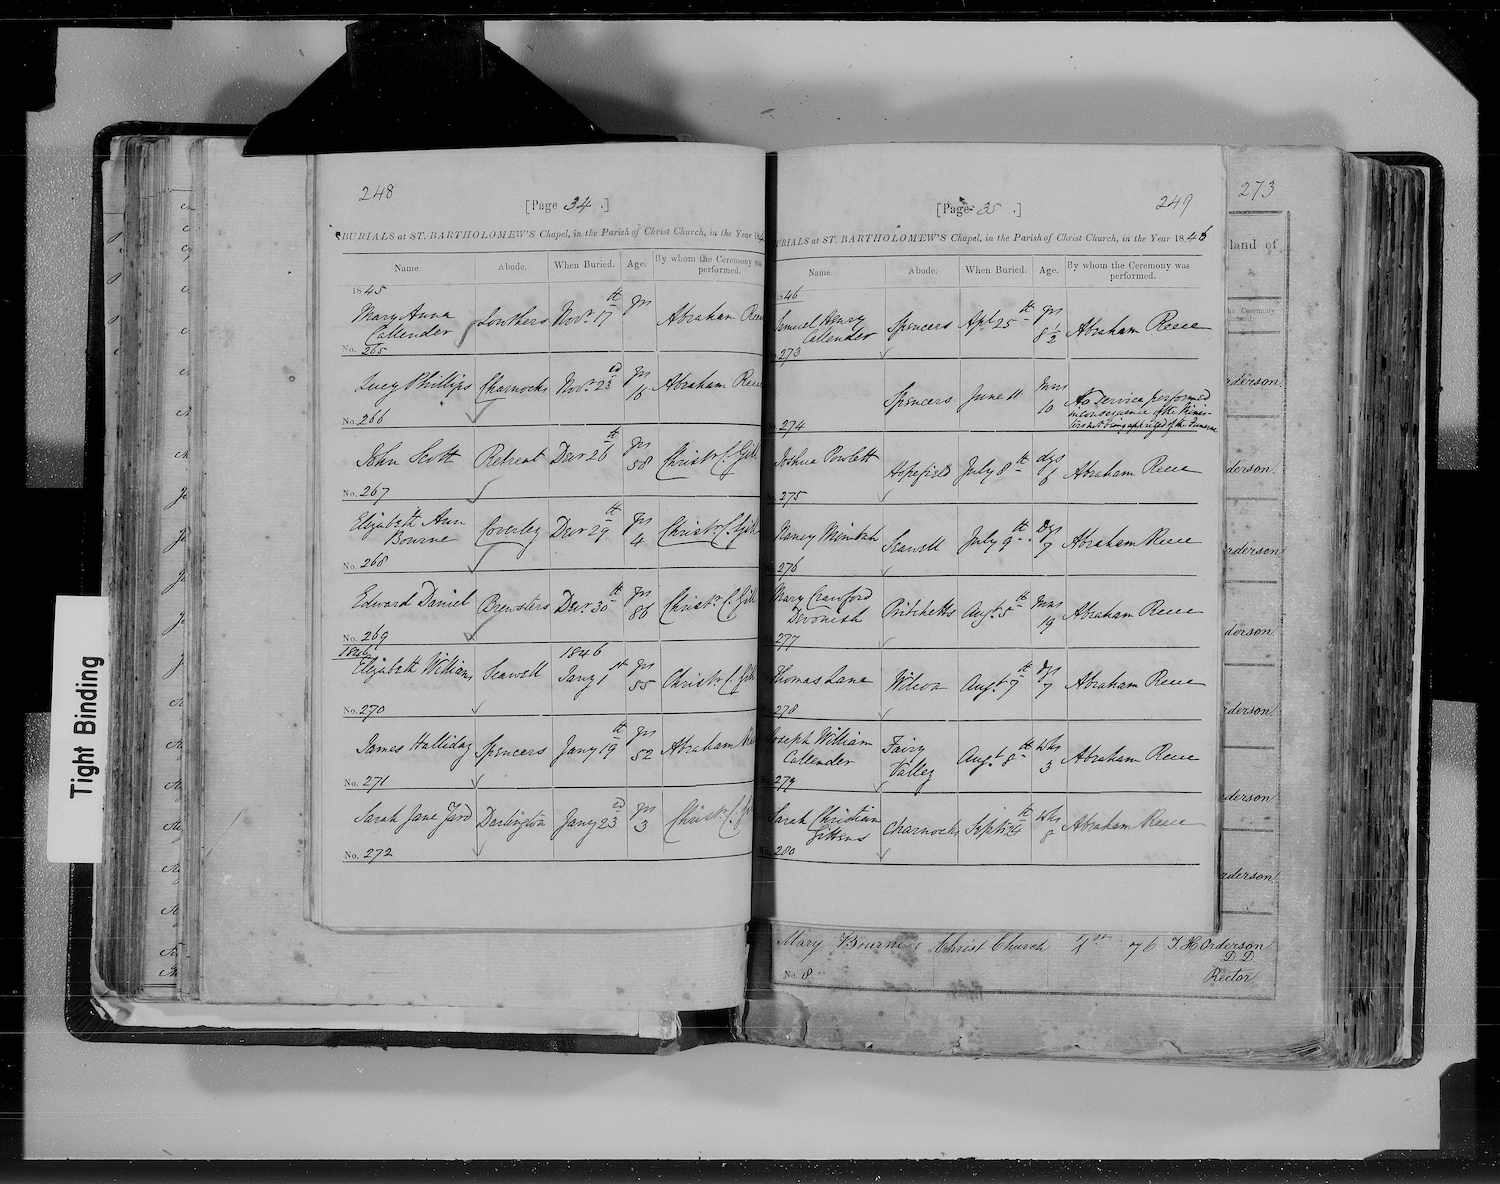 248
[Page 34 .]
BURIALS at ST. BARTHOLOMEW'S Chapel, in the Parish of Christ Church, in the Year 184
Name. Abode. When Buried. Age. By whom the Ceremony was performed.
1845
Mary Anna Callender Lowthers Novr. 17th yrs Abraham Reece
No. 265
Lucy Phillips Charnocks Novr. 23rd yrs 16 Abraham Reece
No. 266
John Scott Retreat Decr 26th yrs 58 Christr. C. Gill
No. 267
Elizabeth Ann Bourne Coverley Decr 29th yrs 4 Christr. C. Gill
No. 268
Edward Daniel Brewsters Decr. 30th yrs 86 Christr. C. Gill
No. 269
1846 1846
Elizabeth Williams Seawell Jany 1st yrs 55 Christr. C. Gill
No. 270
James Halliday Spencers Jany 19th yrs 52 Abraham
No. 271
Sarah Jane Yard Durlington Jany 23rd yrs 3 Christr. C.
No. 272
249
[Page 35 .]
BURIALS at ST. BARTHOLOMEW'S Chapel, in the Parish of Christ Church, in the Year 1846
Name. Abode. When Buried. Age. By whom the Ceremony was performed.
1846
Samuel Henry Callender Spencers Apl. 25th yrs 8 1/2 Abraham Reece
273
Spencers June 11 mns 10 No Service performed
in consequence of the Minis-
ters not being apprized of the Funeral
274
Joshua Powlett Hopefield July 8th dys 6 Abraham Reece
275
Nancy Mimbah Seawell July 9th dys 7 Abraham Reece
276
Mary Crawford Devonish Pritchetts Augt. 5th mns 19 Abraham Reece
277
Thomas Lane Wilcox Augt. 7th dys 7 Abraham Reece
278
Joseph William Callender Fairy Valley Augt. 8th wks 3 Abraham Reece
279
Sarah Christian Gittens Charnocks Septr. 24th wks 8 Abraham Reece
No. 280
273
land of
the Ceremony
rderson
derson
rderson
derson
rderson
derson
rderson
Mary Bourne Christ Church 4th 76 T. H. Orderson
D. D.
Rector
No. 8
Tight Binding